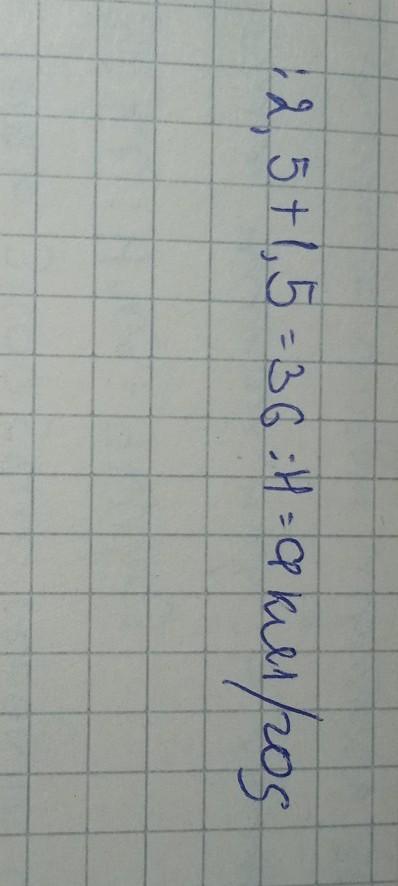 :2,5+1,5=36:4=9 км/год